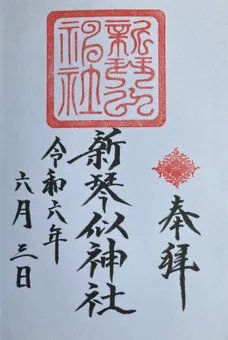 奉拝
新琴似神社
新琴似神社
令和六年
六月三日